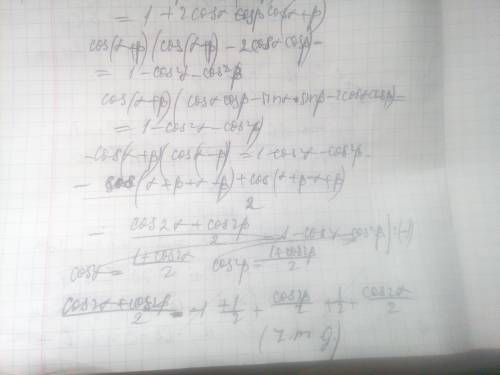 = 1 + 2cosα cosβ cos(α+β)
cos(α+β) (cos(α+β) - 2cosα cosβ) =
= 1 - cos²α - cos²β
cos(α+β) (cosα cosβ - sinα · sinβ - 2cosα cosβ)
= 1 - cos²α - cos²β
- cos(α+β) (cos(α-β)) = 1 - cos²α - cos²β
- cos(α+β+α-β) + cos(α+β-α+β) / 2
- cos2α + cos2β / 2 = 1 - cos²α - cos²β | · (-1)
cos²α = 1+cos2α / 2 cos²β = 1+cos2β / 2
cos2α + cos2β / 2 = -1 + 1/2 + cos2β / 2 + 1/2 + cos2α / 2